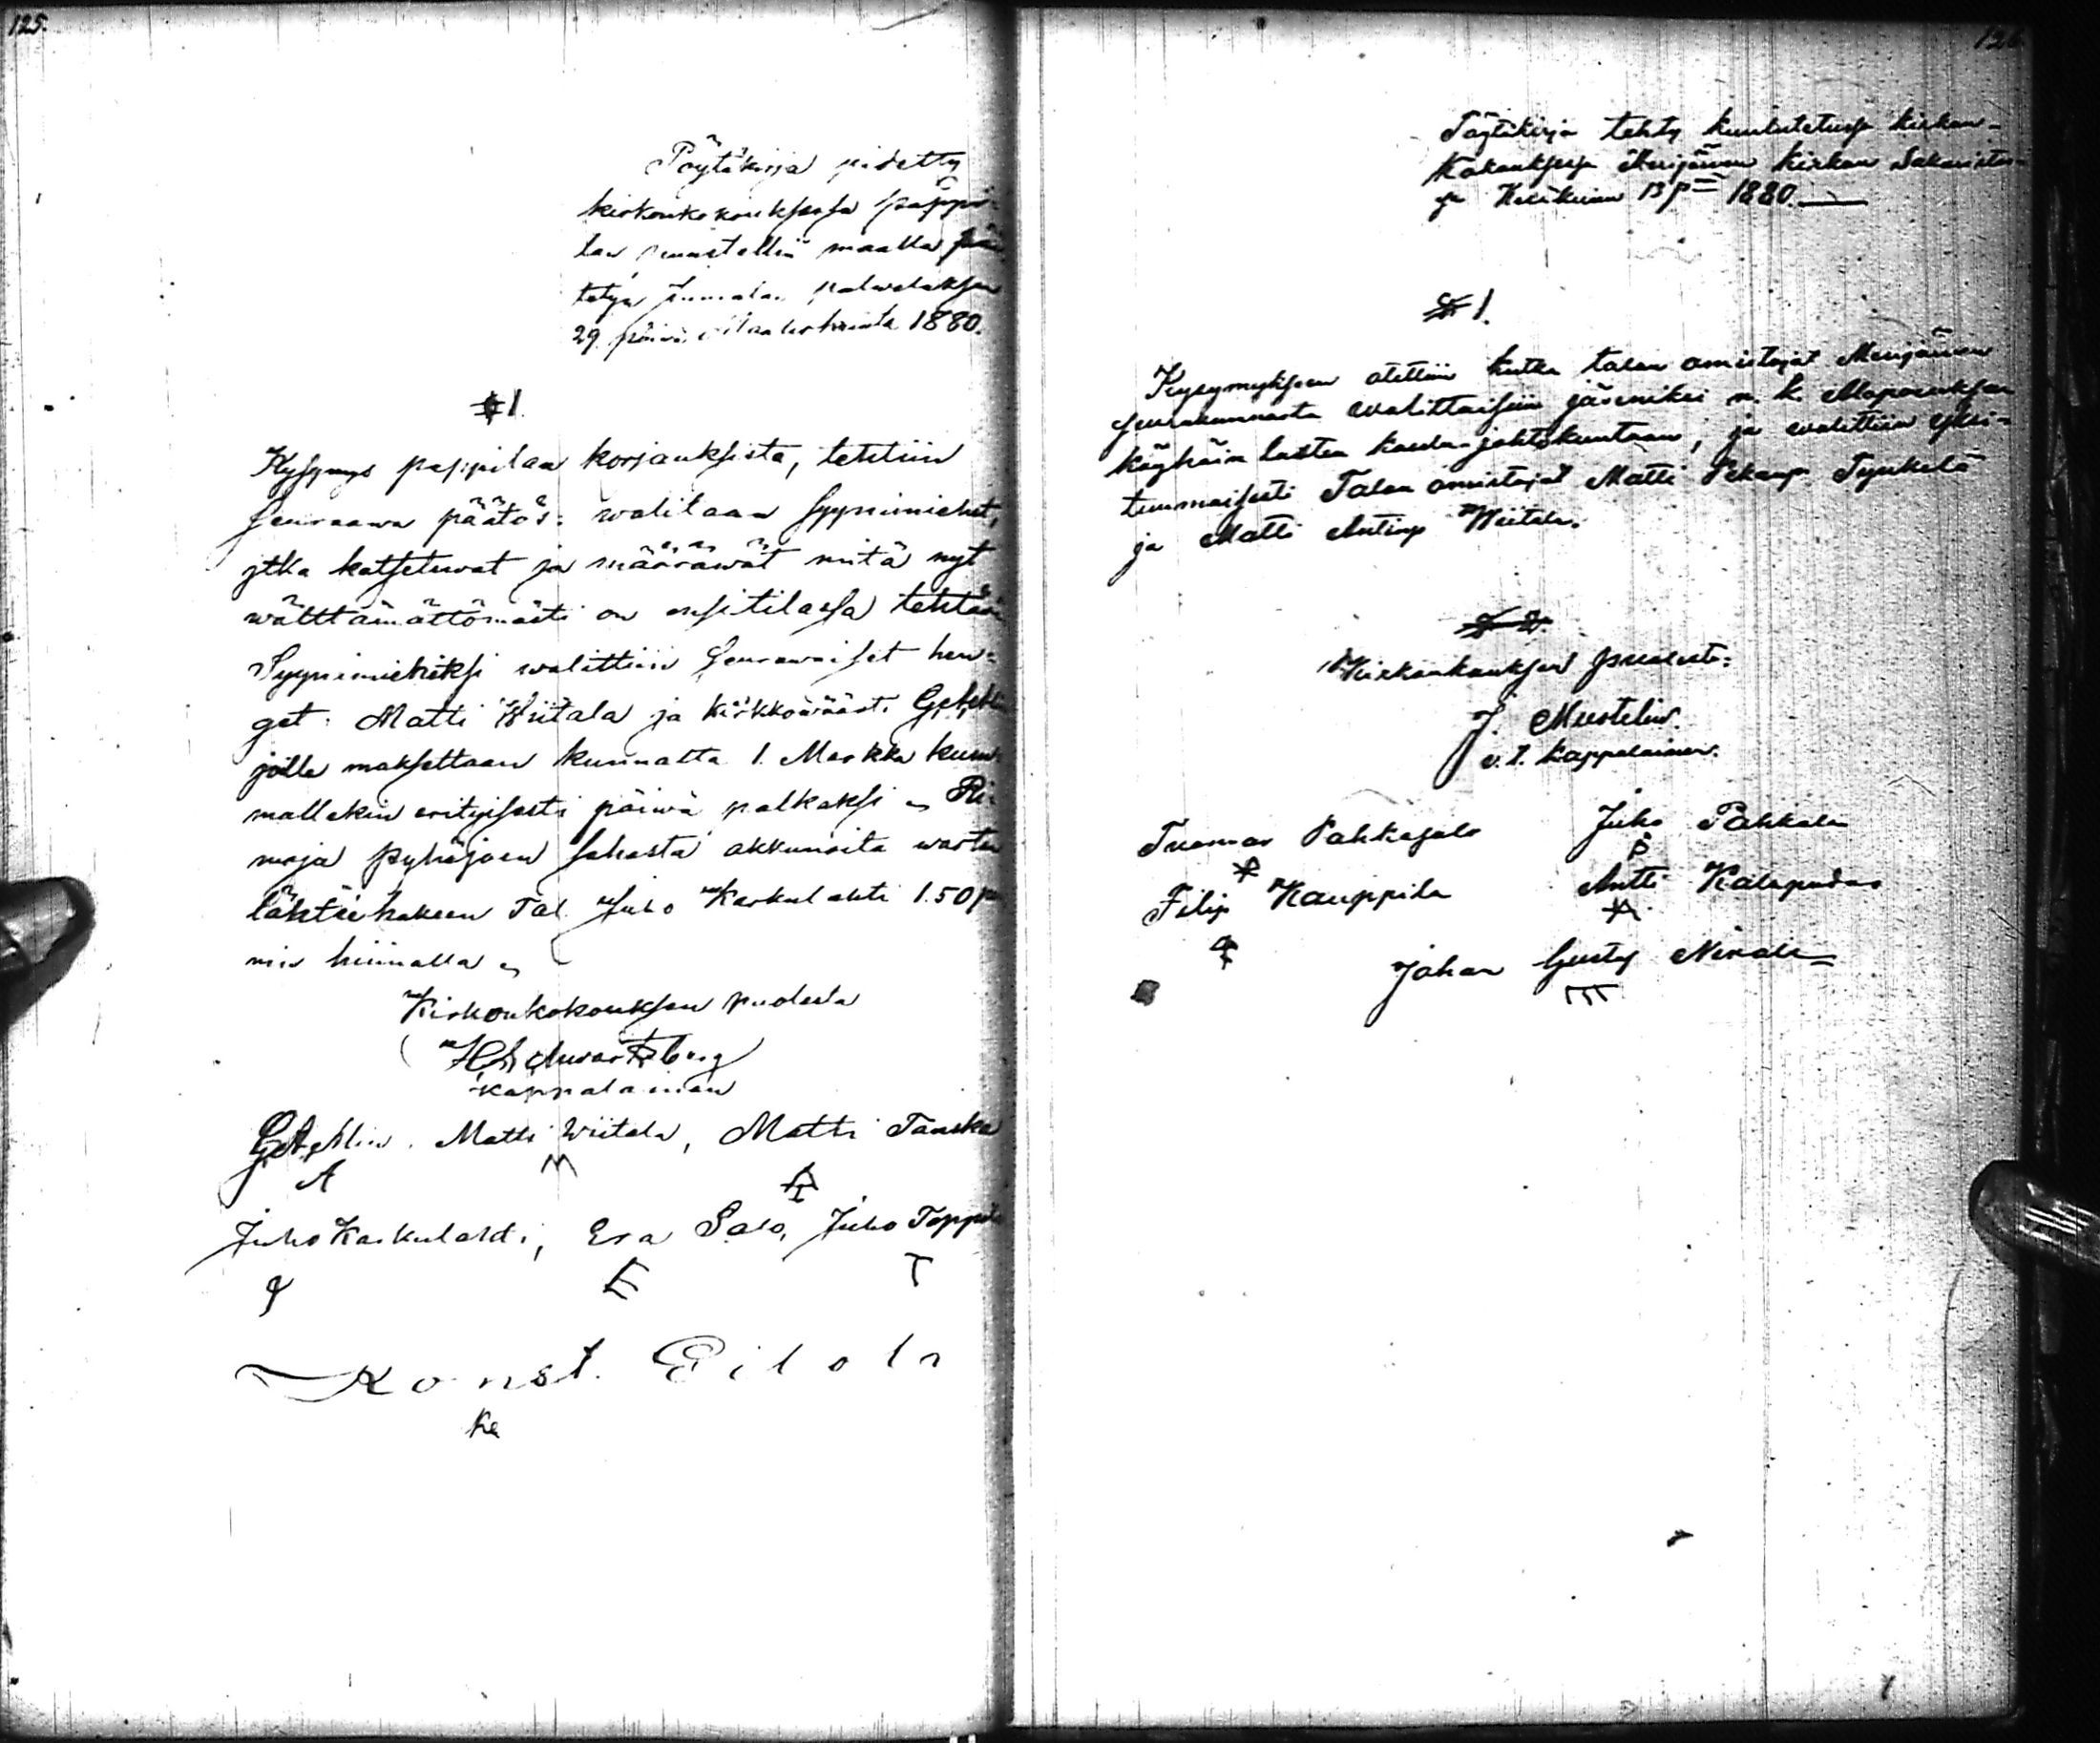 125.
Pöytäkirja pidetty
kirkonkokouksessa pappi-
lan puustellin maalla
Jumalan palveluksen
29 päivä Maaliskuuta 1880.
§ 1.
Kysymys pappilan korjauksista, tehtiin
seuraawa päätös: walitaan syynimiehet,
jtka katseluwat ja määräwät mitä nyt
wälttämättömästi on ensitilassa tehtävä
Syynimiehiksi walittiin seurawaiset hen-
get: Matti Wiitala ja kirkkowäärti
joille maksettaan kunnalta 1. Markka kum-
mallekin erityisesti päiwä palkaksi
Pyhäjoen sahasta akkunoita warten
lähtee hakeen Tal. Juho Karkulahti 1.50 p
nin hinnalla
Kirkonkokouksen puolesta
H Schwartzberg
kappalainen
Matti Wiitala, Matti Tanska
A M
Juho Karkulahti, Esa Salo, Juho Toppila
E T
Konst. Eilola
Ke
126
Pöytäkirja tehty kuulutetussa kirkon-
kokouksessa Merijärven kirkon Sakaristos-
sa Kesäkuun 13 p 1880.
§ 1.
Kysymykseen otettiin kutka talon omistajat Merijärven
seurakunnasta walittaisiin jäseniksi n. k.
köyhäin lasten johtokuntaan, ja walittiin yksi-
tuumaisesti Talon omistajat Matti Pekanp. Tynkelä
ja Matti Antinp Wiitala.
Kirkonkokouksen puolesta:
J. Mustelin.
v. t. kappalainen.
Tuomas Pahkasalo Juho Pahkala
P
Filip Kauppila Antti Kalapudas
Johan Gustaf Nikola